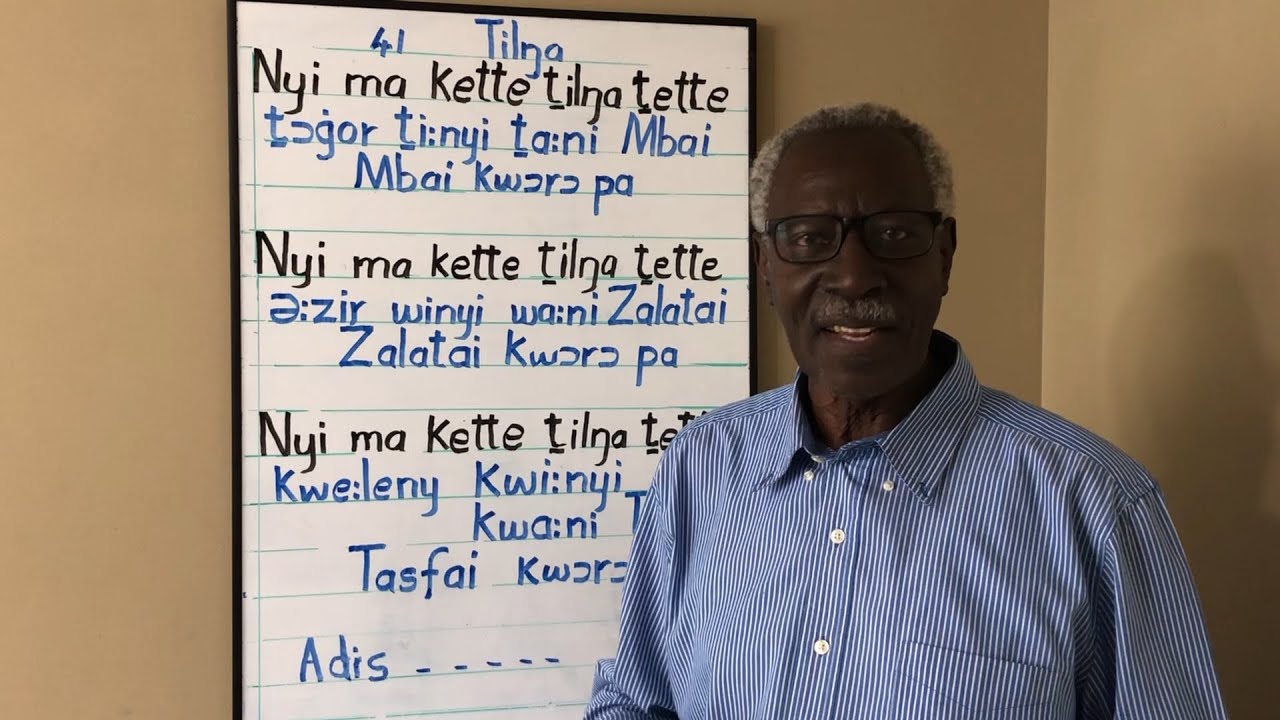 41 Tilŋa
Nyi ma kette ṯilŋa ṯette
ṯɔġor ṯi:nyi ṯa:ni Mbai
Mbai kwɔrɔ pa
Nyi ma kette ṯilŋa ṯette
Ə:zir winyi wa:ni Zalatai
Zalatai kwɔrɔ pa
Nyi ma kette ṯilŋa
Kwe:leny Kwi:nyi
kwa:ni
Tasfai kwɔrɔ
Adis - - - - -